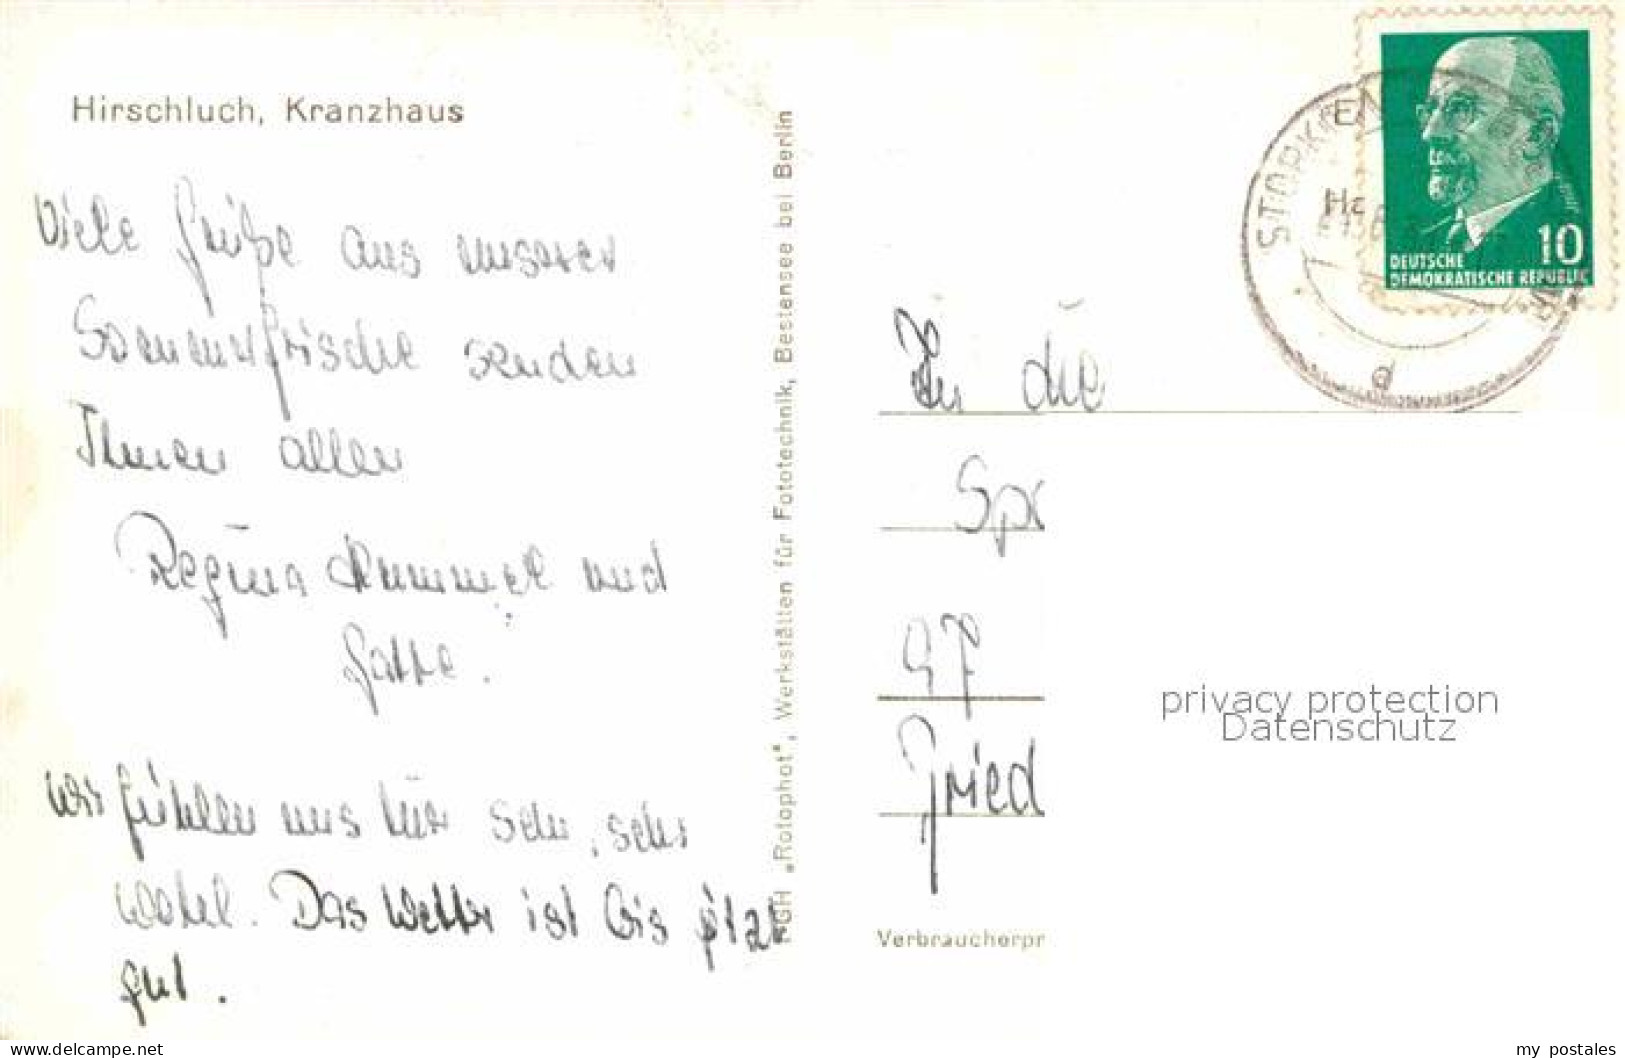 Hirschluch, Kranzhaus
Viele Grüße aus unserer
Sommerfrische senden
Ihnen allen
Regina Hummel und
Gatte.
Wir fühlen uns hier sehr, sehr
wohl. Das Wetter ist bis jetzt
gut.
PGH „Rotophot", Werkstätten für Fototechnik, Bestensee bei Berlin
STORKOW
d
10
DEUTSCHE
DEMOKRATISCHE REPUBLIK
An die
Spr
Fried
Verbraucherpr
privacy protection
Datenschutz
www.delcampe.net
my_postales